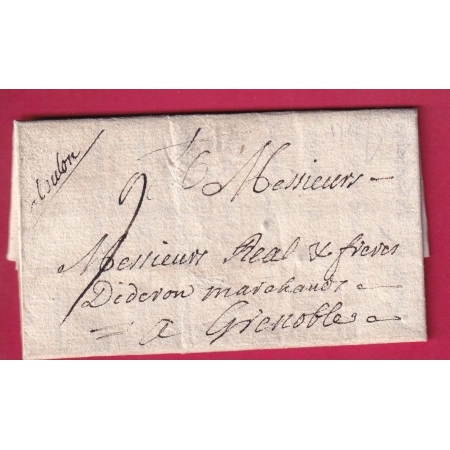 Toulon
A Messieurs
Messieurs Real & freres
Dideron marchands
a Grenoble